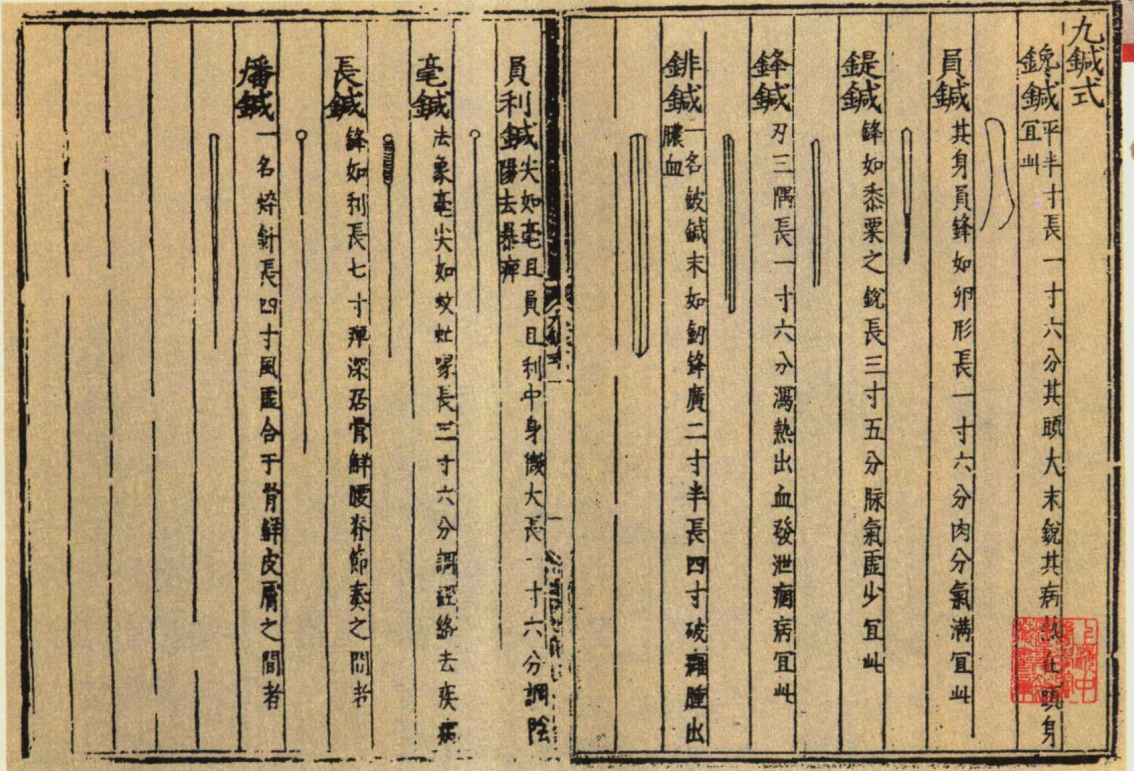 九鍼式
鑱鍼平半寸長一寸六分其頭大末銳其病熱在頭身
宜此
員鍼其身員鋒如卵形長一寸六分肉分氣滿宜此
鍉鍼鋒如黍粟之銳長三寸五分脉氣虛少宜此
鋒鍼刃三隅長一寸六分瀉熱出血發泄痼病宜此
鈹鍼一名鈹鍼末如劒鋒廣二寸半長四寸破癰腫出
膿血
員利鍼尖如毫且員且利中身微大長一寸六分調陰
陽去暴痹
毫鍼法象毫尖如蚊虻喙長三寸六分調經絡去疾病
長鍼鋒如利長七寸痹深居骨解腰脊節奏之間者
燔鍼一名焠針長四寸風虛合于骨解皮膚之間者